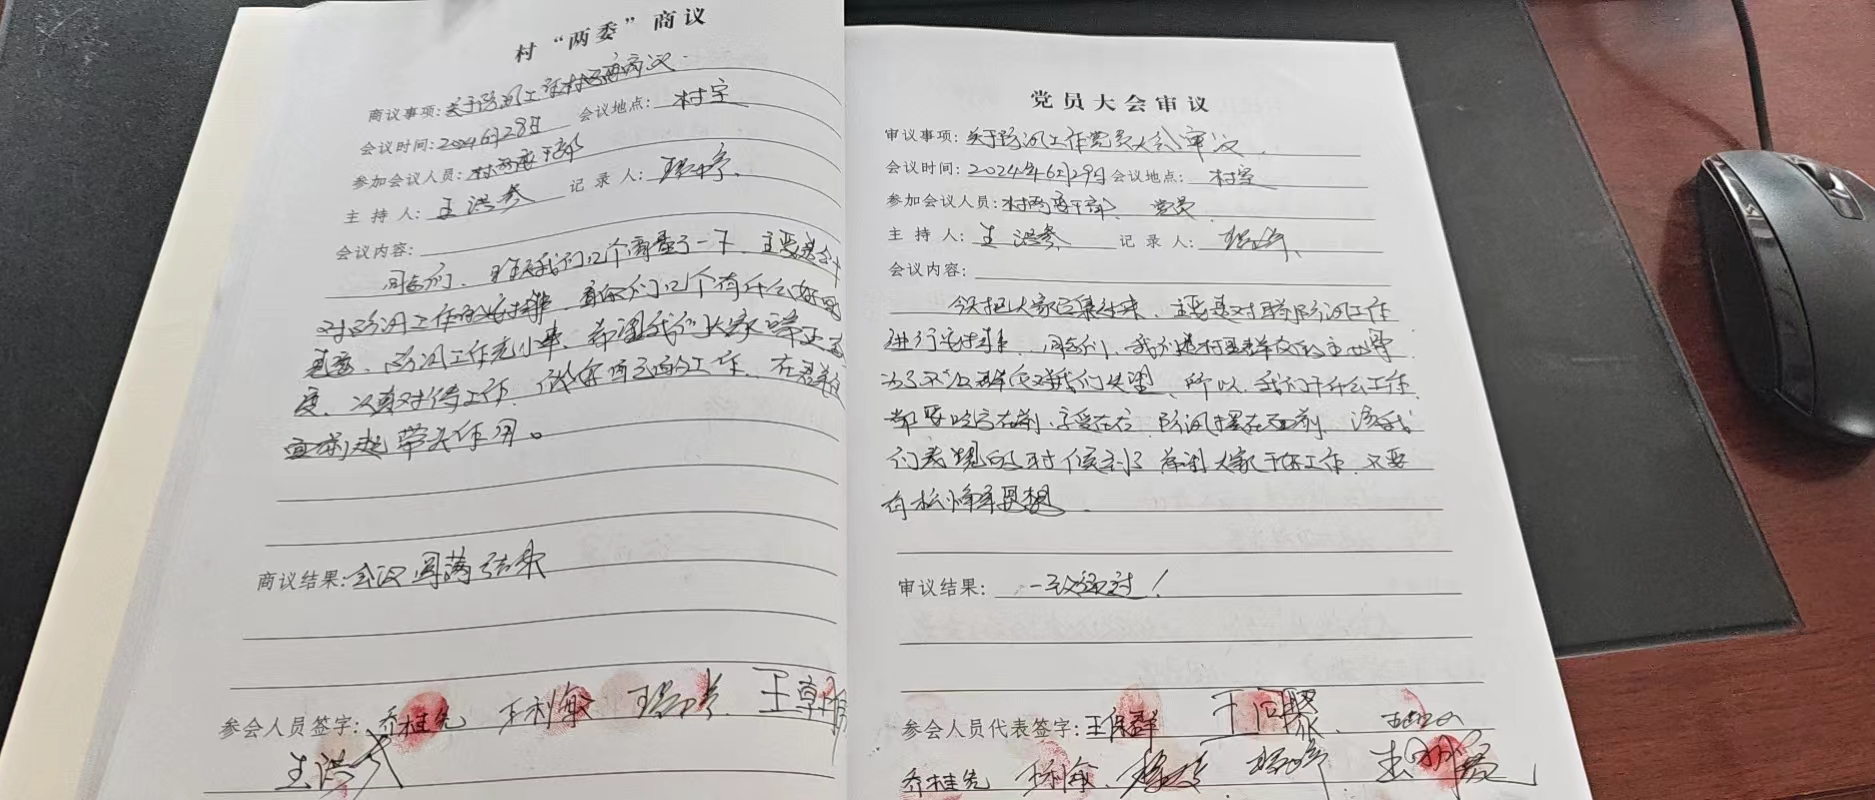 村“两委”商议
商议事项:关于防汛工作村两委商议.
会议时间:2024 6月28日 会议地点: 村室
参加会议人员:村两委干部
主 持 人: 王洪参 记 录 人:
会议内容:
同志们、昨天我们几个商量了一下、主要是
对防汛工作的安排、看你们几个有什么好的
意要、防汛工作无小事、希望我们大家端正态
度、认真对待工作、做好两方面的工作、在群众
面前起带头作用。
商议结果:会议圆满结束
参会人员签字: 乔桂先 王利敏
王洪参
党员大会审议
审议事项:关于防汛工作党员大会审议.
会议时间: 2024年6月29日 会议地点: 村室
参加会议人员:村两委干部、党员.
主 持 人: 王洪参 记 录 人:
会议内容:
今天把大家召集过来、主要是对目前防汛工作
进行安排、同志们、我们是村里群众的主心骨.
为了不让群众对我们失望、所以、我们干什么工作
都要吃苦在前、享受在后、防汛摆在面前、该我
们表现的时候到了 希望大家干好工作、不要
有松懈思想.
审议结果: 一致通过!
参会人员代表签字: 王保群
乔桂先